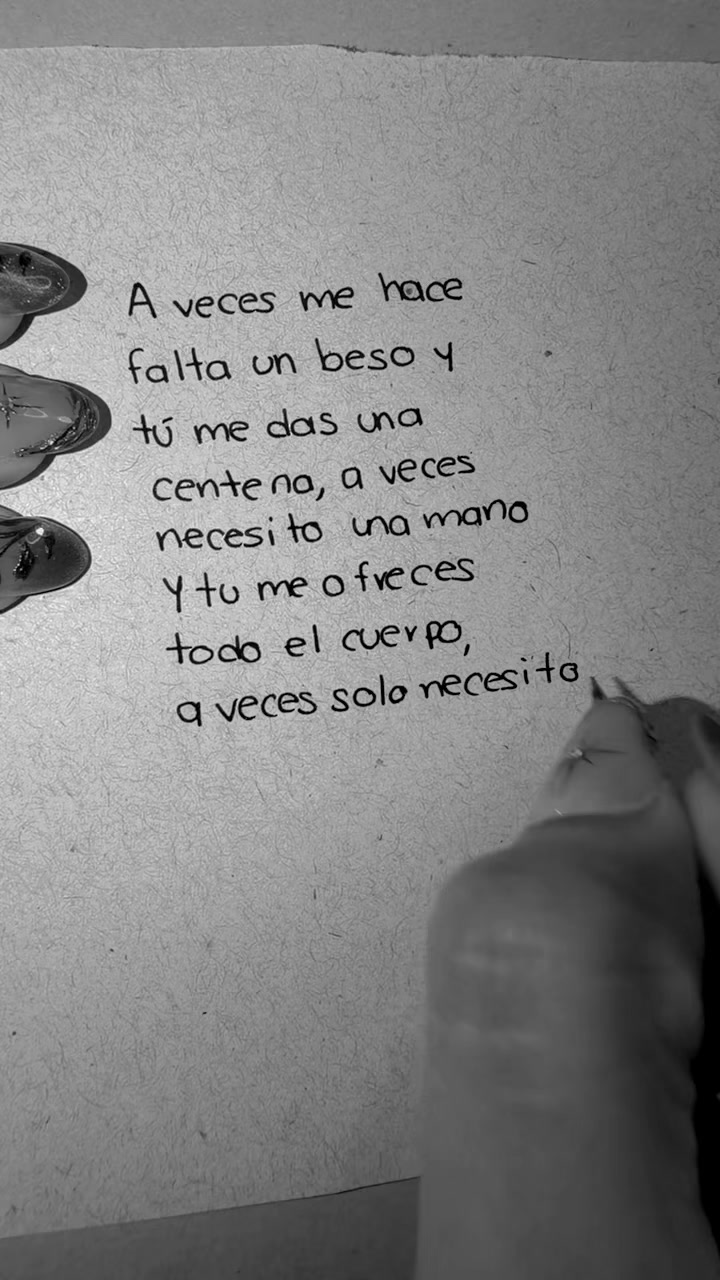 A veces me hace
falta un beso y
tú me das una
centena, a veces
necesito una mano
y tu me ofreces
todo el cuerpo,
a veces solo necesito